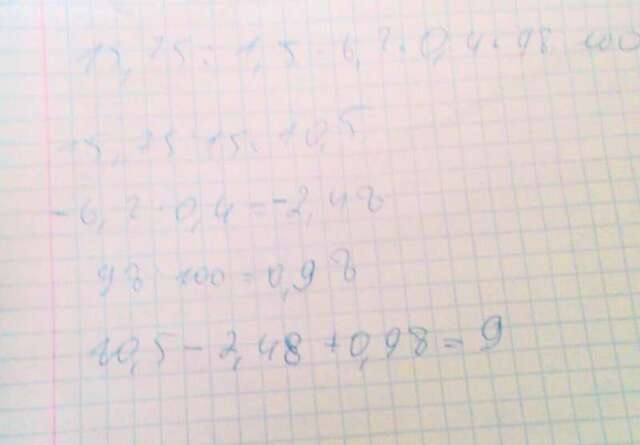 15,75 : 1,5 - 6,2 · 0,4 + 98 : 100
15,75 : 1,5 = 10,5
-6,2 · 0,4 = -2,48
98 : 100 = 0,98
10,5 - 2,48 + 0,98 = 9